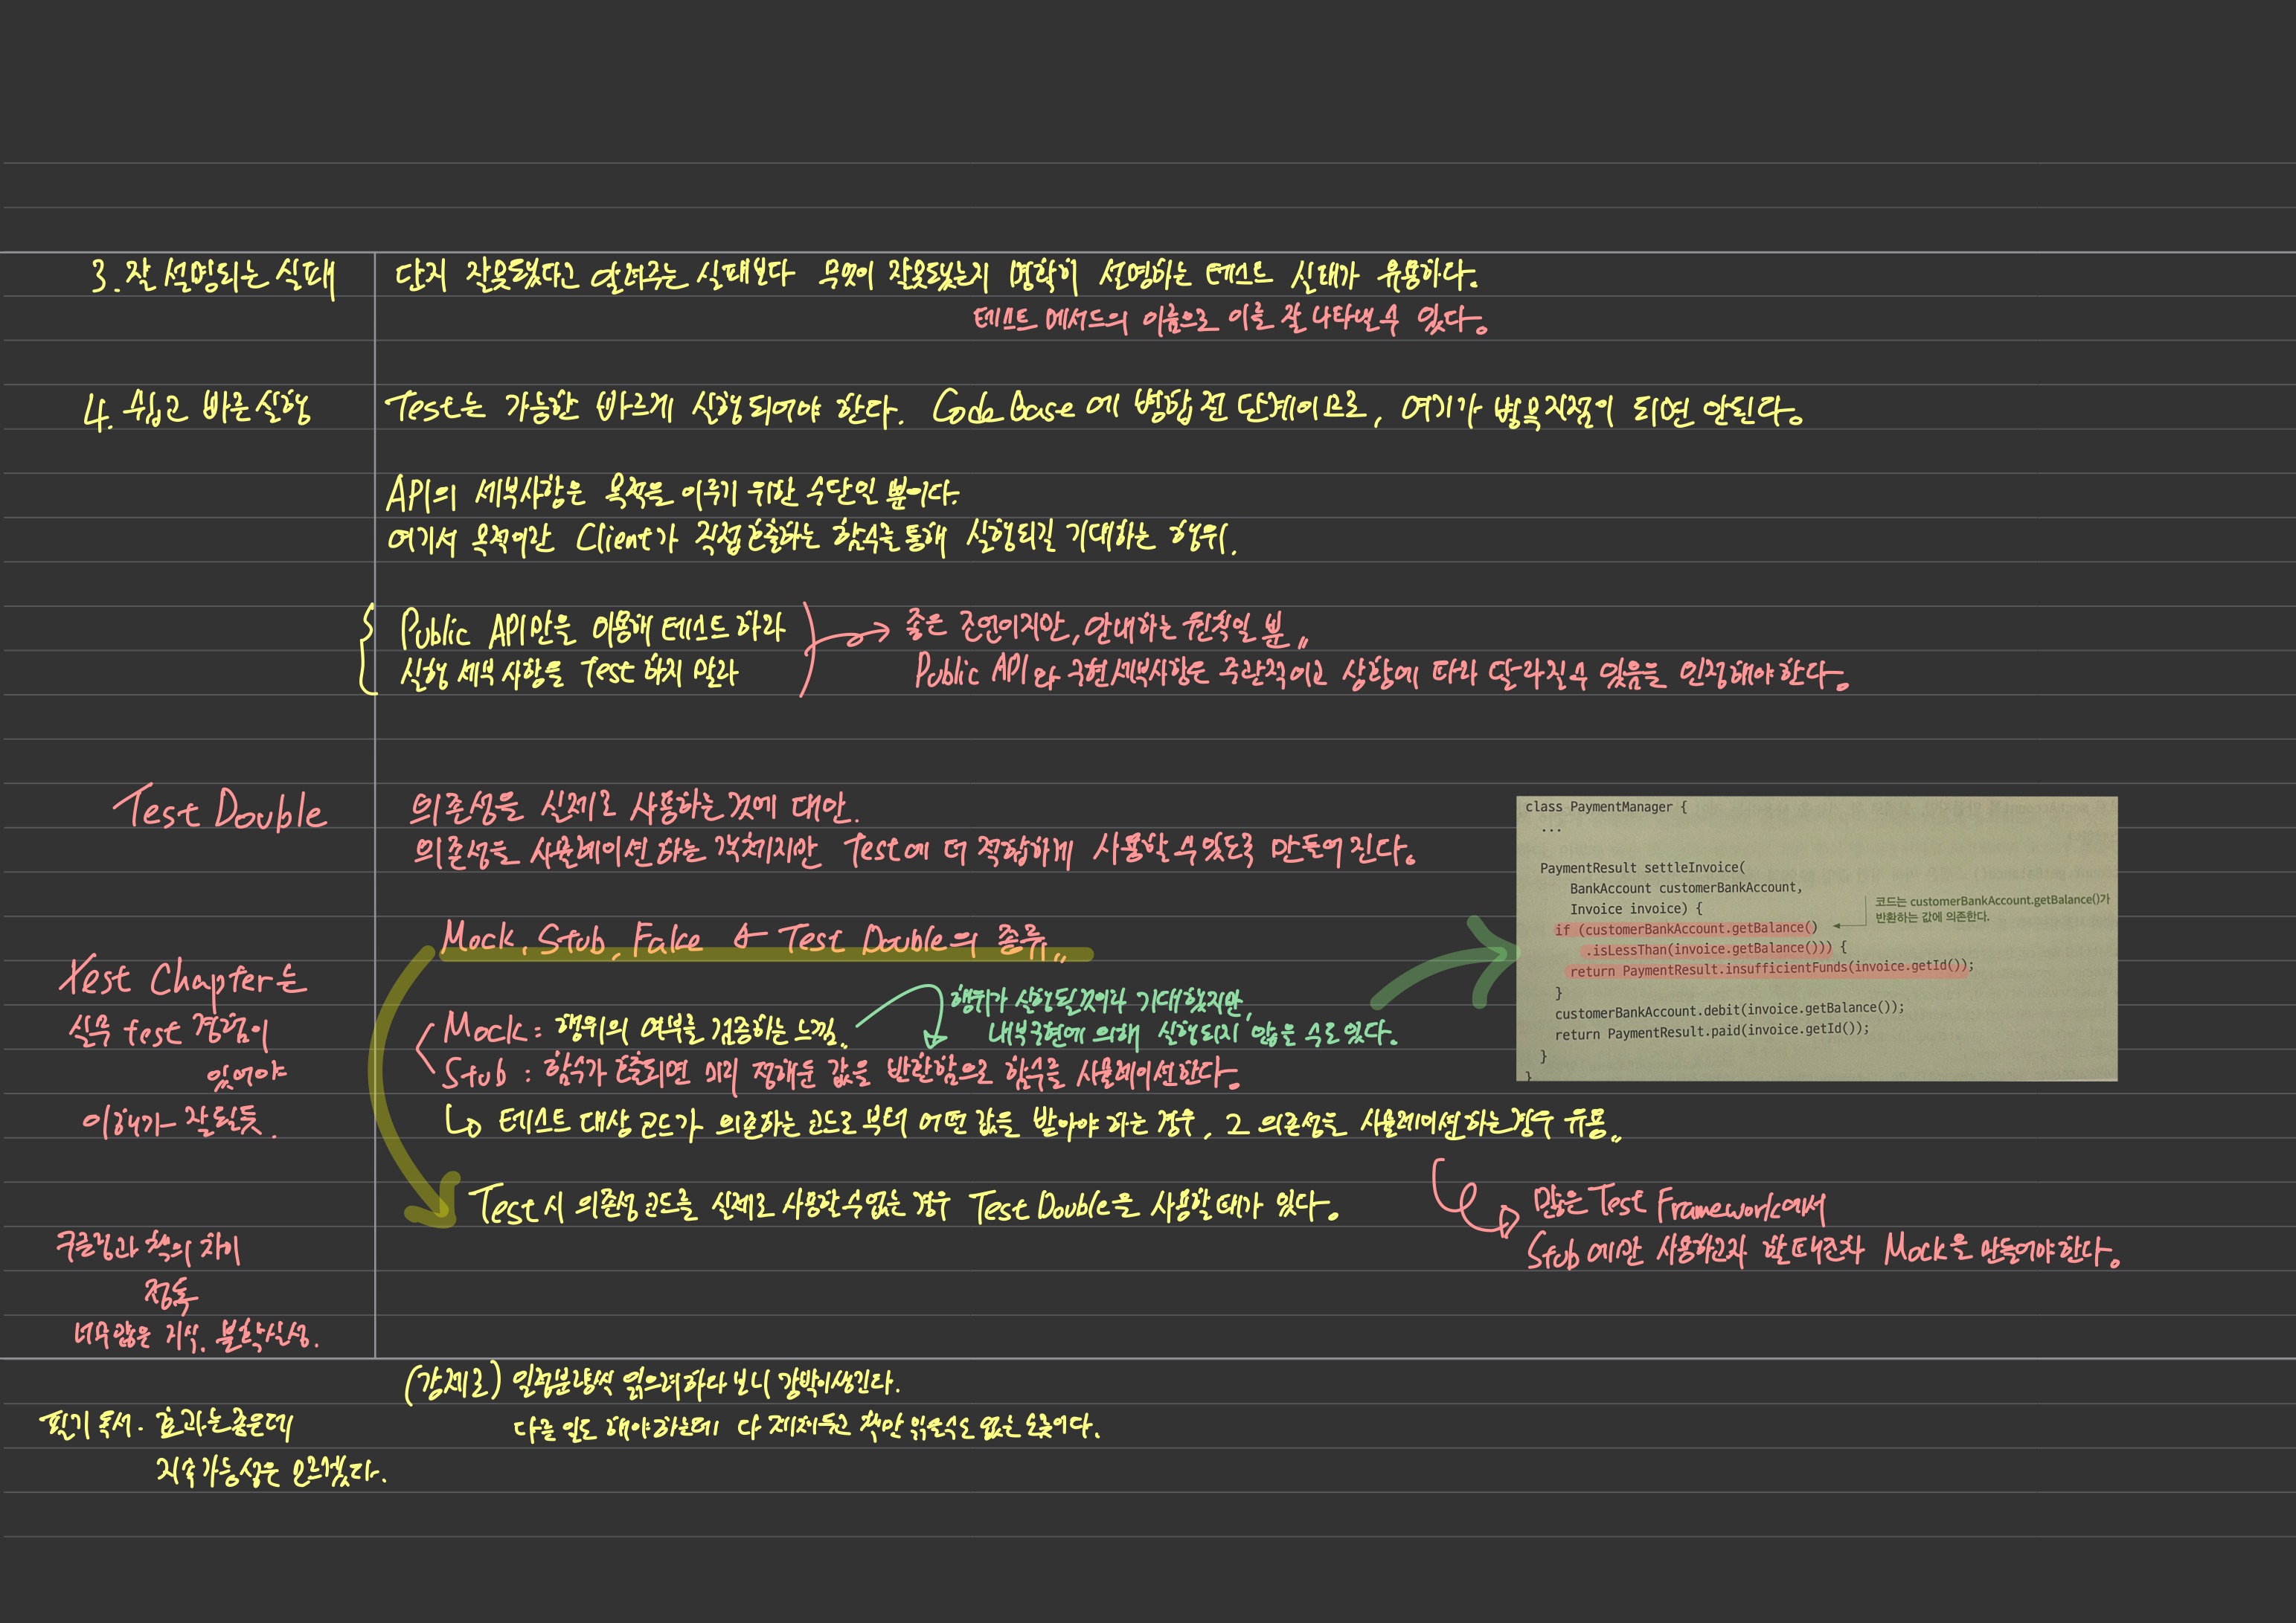 3. 잘 설명되는 실패
단지 잘못됬다고 알려주는 실패보다 무엇이 잘못됬는지 명확히 설명하는 테스트 실패가 유용하다.
테스트 메서드의 이름으로 이를 잘 나타낼 수 있다.
4. 쉽고 빠른 실행
Test는 가능한 빠르게 실행되어야 한다. Code Base에 병합 전 단계이므로, 여기가 병목지점이 되면 안된다.
API의 세부사항은 목적을 이루기 위한 수단일 뿐이다.
여기서 목적이란 Client가 직접 호출하는 함수를 통해 실행되길 기대하는 행위.
Public API만을 이용해 테스트하라
실행 세부 사항을 Test 하지 말라
좋은 조언이지만, 안내하는 원칙일 뿐
Public API와 구현 세부사항은 주관적이고 상황에 따라 달라질 수 있음을 인정해야한다.
Test Double
의존성을 실제로 사용하는 것에 대안.
의존성을 시뮬레이션 하는 객체지만 Test에 더 적합하게 사용할 수 있도록 만들어진다.
Mock, Stub, Fake ← Test Double의 종류
Mock : 행위의 여부를 검증하는 느낌
행위가 실행될것이라 기대했지만,
내부구현에 의해 실행되지 않을 수도 있다.
Stub : 함수가 호출되면 미리 정해둔 값을 반환함으로 함수를 시뮬레이션한다.
↳ 테스트 대상 코드가 의존하는 코드로 부터 어떤 값을 받아야 하는 경우, 그 의존성을 시뮬레이션하는 경우 유용
Test시 의존성 코드를 실제로 사용할 수 없는 경우 Test Double을 사용할 때가 있다.
많은 Test Framework에서
Stub에만 사용하고자 할 때조차 Mock을 만들어야한다.
class PaymentManager {
...
PaymentResult settleInvoice(
BankAccount customerBankAccount,
Invoice invoice) {
if (customerBankAccount.getBalance()
.isLessThan(invoice.getBalance())) {
return PaymentResult.insufficientFunds(invoice.getId());
}
customerBankAccount.debit(invoice.getBalance());
return PaymentResult.paid(invoice.getId());
}
}
코드는 customerBankAccount.getBalance()가
반환하는 값에 의존한다.
Test Chapter는
실무 test 경험이
있어야
이해가 잘 될듯.
구글링과 책의 차이
정독
너무 많은 지식. 불확실성.
(강제로) 일정분량씩 읽으려하다 보니 강박이 생긴다.
다른 일도 해야하는데 다 제쳐두고 책만 읽을수도 없는 노릇이다.
필기 독서. 효과는 좋은데
지속가능성은 모르겠다.